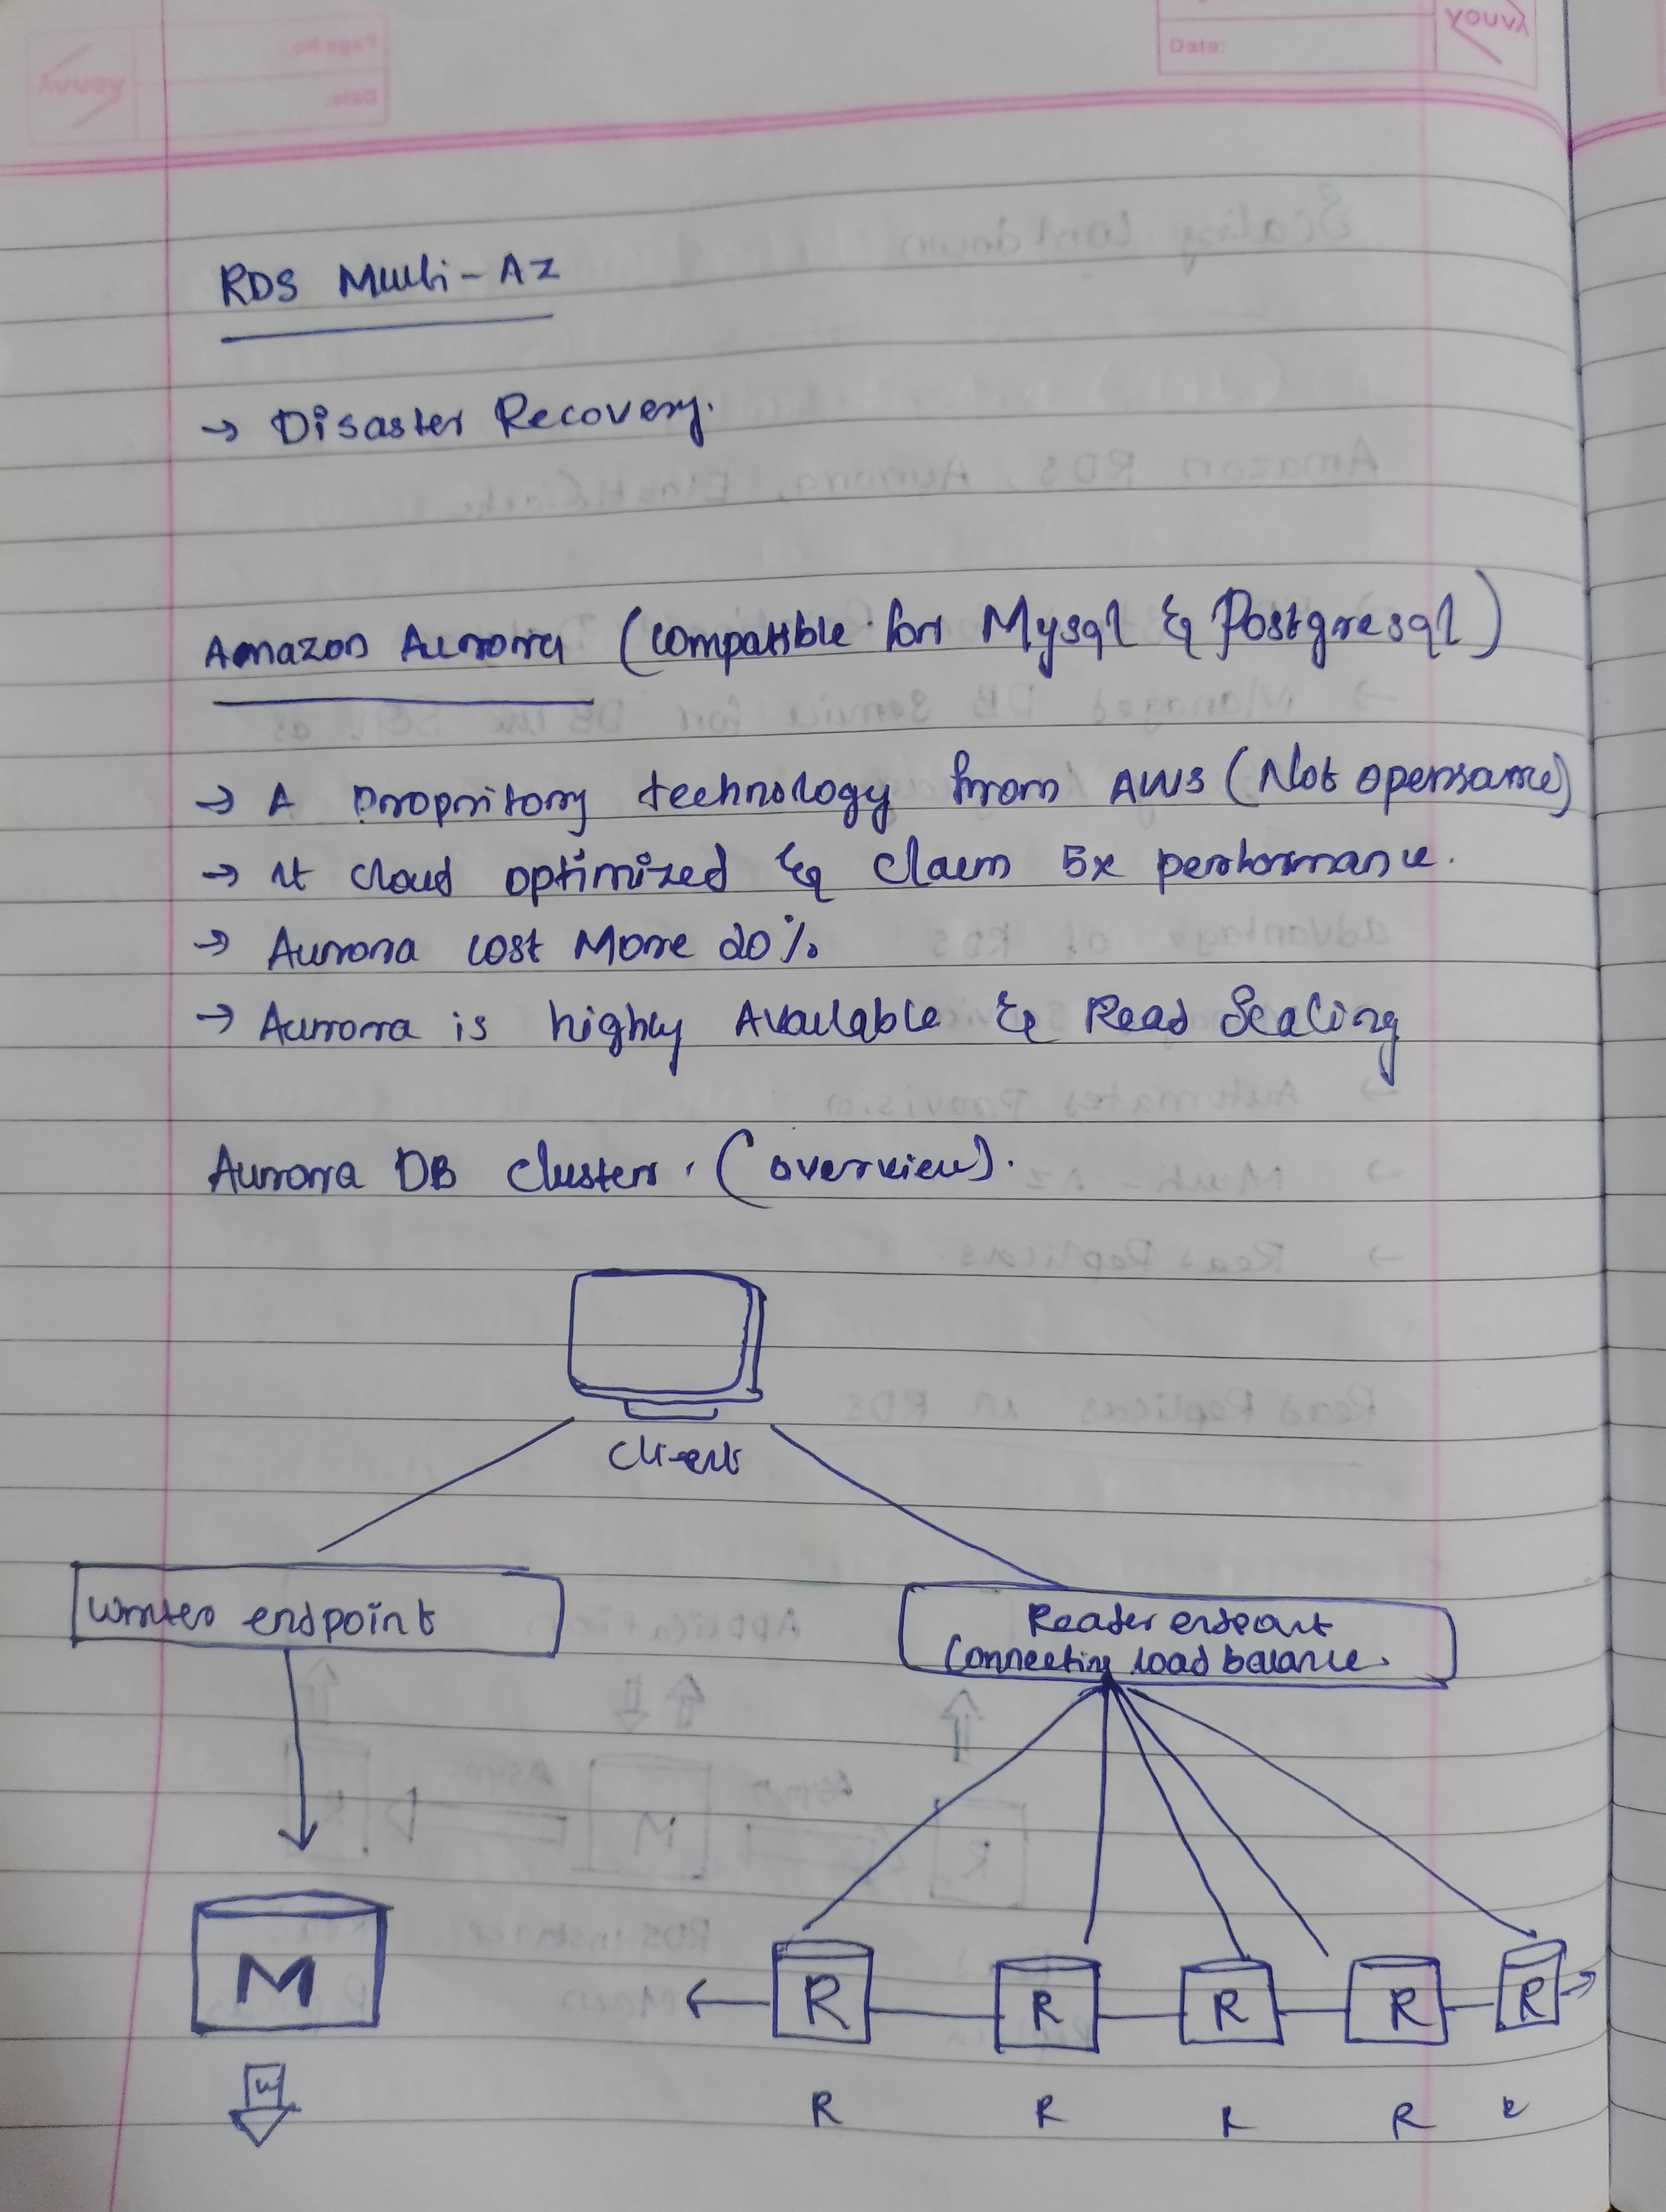 Date:
YOUVA
RDS Multi-AZ
→ Disaster Recovery.
Amazon Aurora (compatible for Mysql & Postgresql)
→ A propritory technology from AWS (Not opensource)
→ It cloud optimized & claim 5x performance.
→ Aurora cost More 20%
→ Aurora is highly Available & Read Scaling
Aurora DB Cluster. (overview).
Client
Writer endpoint
Reader endpoint
Connecting load balance.
M
R R R R R
W
R R R R R